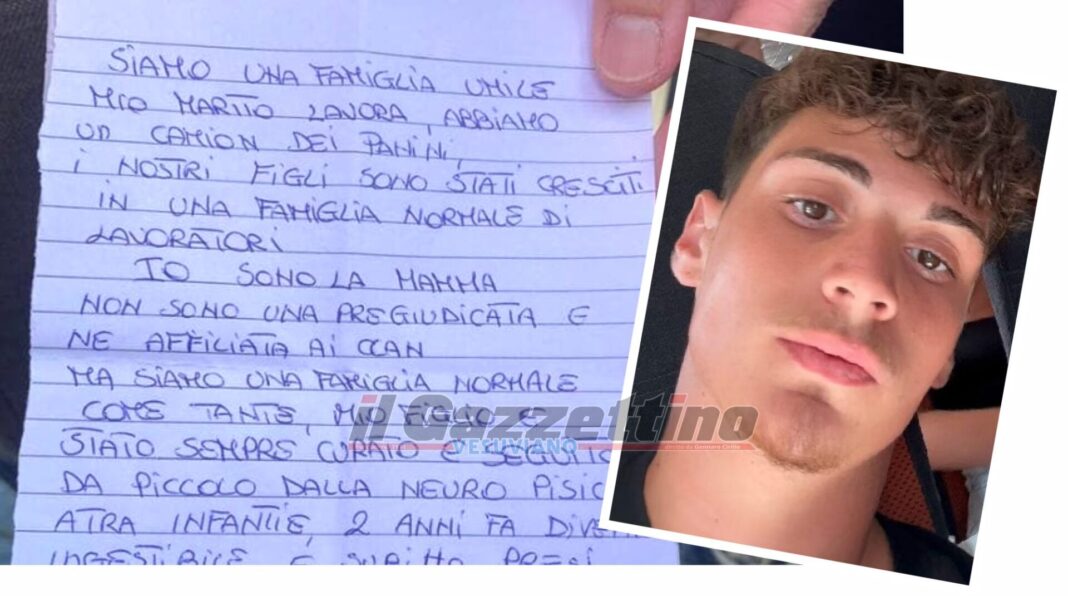 SIAMO UNA FAMIGLIA UMILE
MIO MARITO LAVORA, ABBIAMO
UN CAMION DEI PANINI,
I NOSTRI FIGLI SONO STATI CRESCITI
IN UNA FAMIGLIA NORMALE DI
LAVORATORI
IO SONO LA MAMMA
NON SONO UNA PREGIUDICATA E
NE AFFILIATA AI CLAN
MA SIAMO UNA FAMIGLIA NORMALE
COME TANTE, MIO FIGLIO E
STATO SEMPRE CURATO E SEGUITO
DA PICCOLO DALLA NEURO PISIC
ATRA INFANTIE, 2 ANNI FA DIVE
INGESTIBILE E SUBITO PRESI
il Gazzettino
VESUVIANO
diretto da Gennaro Cirillo